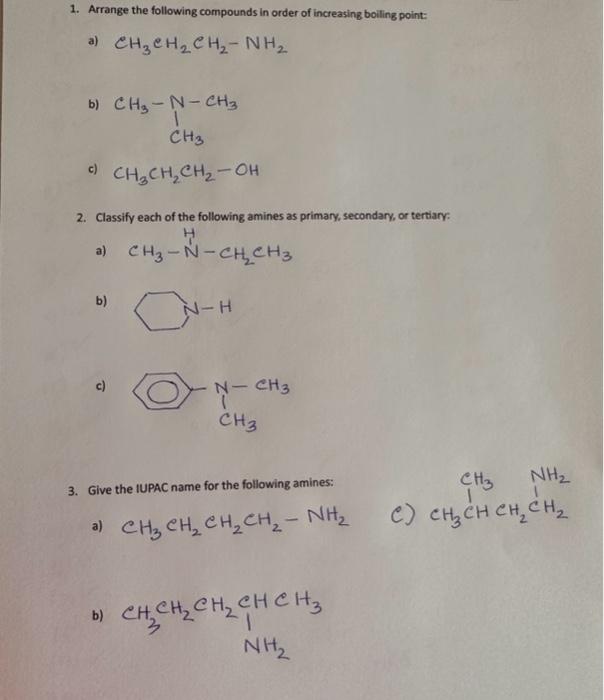 1. Arrange the following compounds in order of increasing boiling point:
a) CH₃CH₂CH₂-NH₂
b) CH₃-N-CH₃
CH₃
c) CH₃CH₂CH₂-OH
2. Classify each of the following amines as primary, secondary, or tertiary:
H
a) CH₃-N-CH₂CH₃
b) N-H
c) N-CH₃
CH₃
3. Give the IUPAC name for the following amines:
CH₃ NH₂
a) CH₃CH₂CH₂CH₂-NH₂ c) CH₃CHCH₂CH₂
b) CH₃CH₂CH₂CHCH₃
NH₂